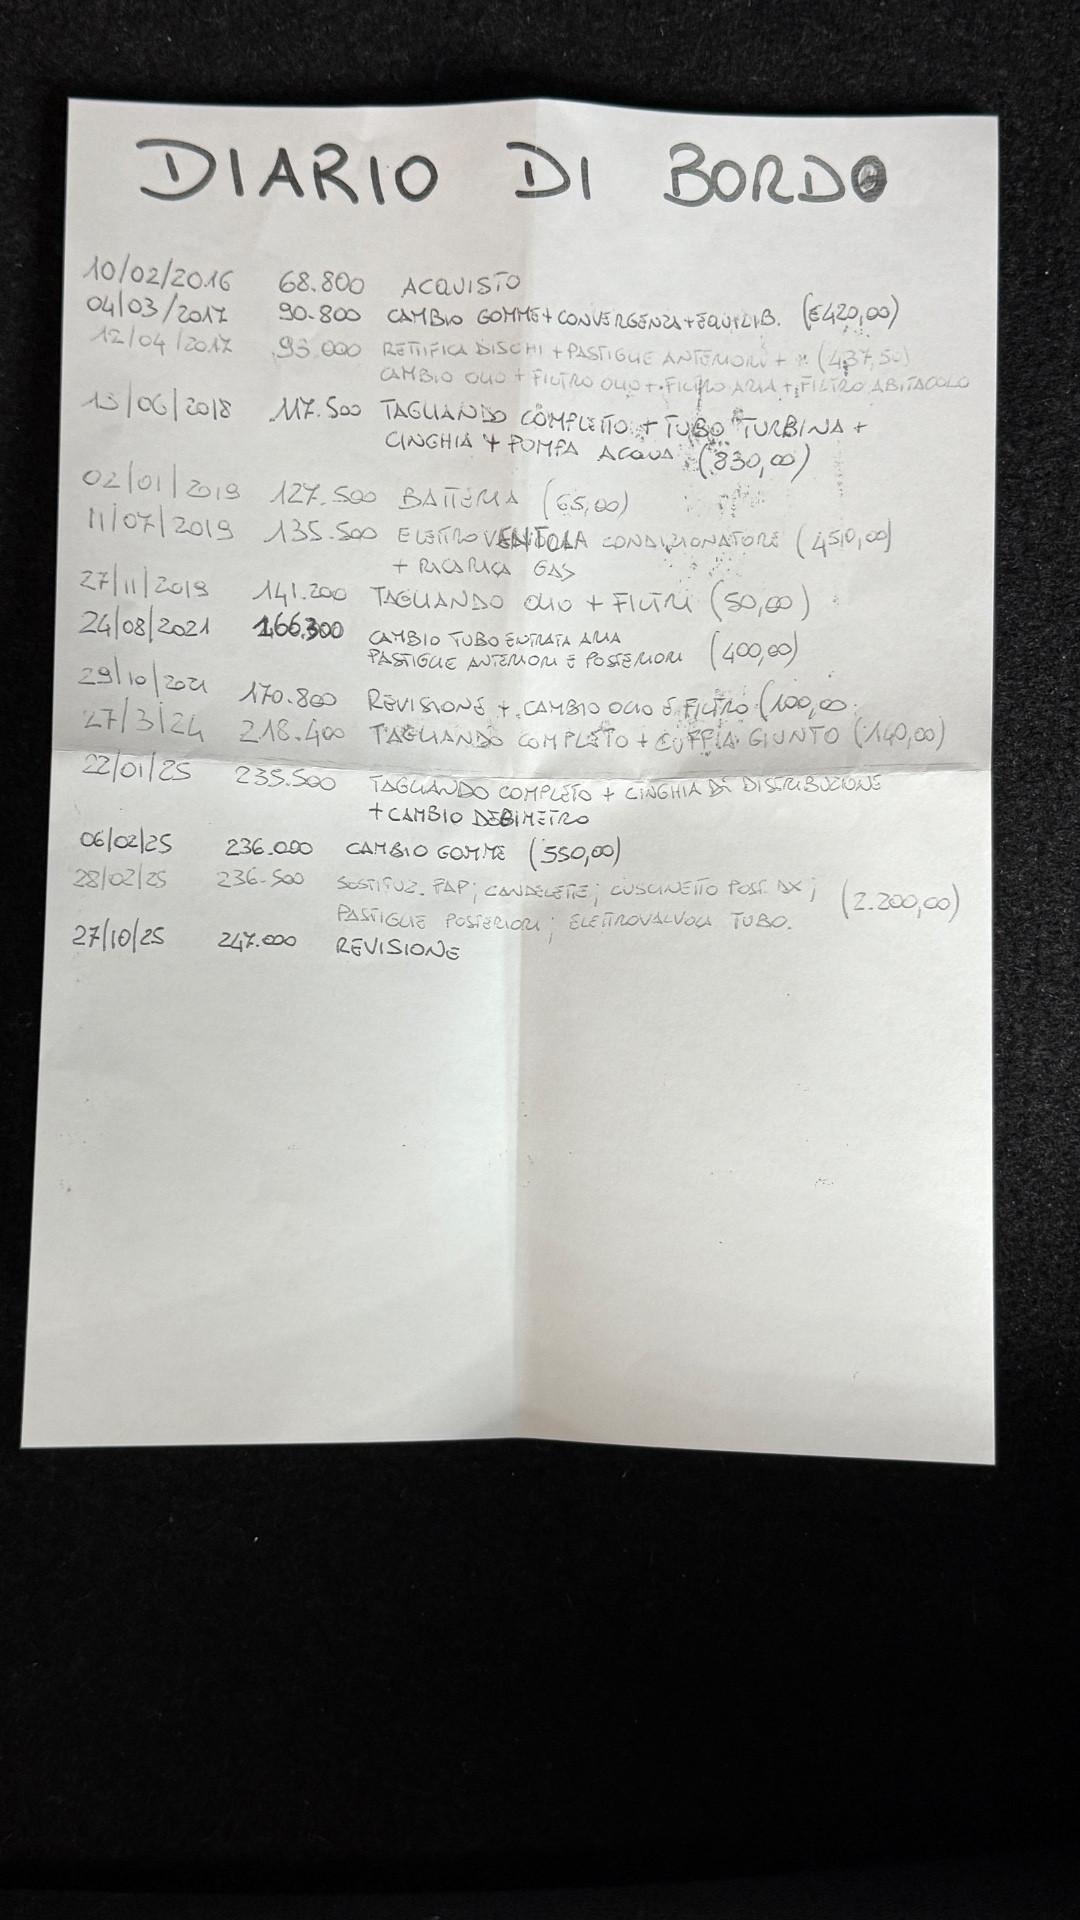 DIARIO DI BORDO
10/02/2016 68.800 ACQUISTO
04/03/2017 90.800 CAMBIO GOMME + CONVERGENZA + EQUILIB. (€420,00)
12/04/2017 93.000 RETTIFICA DISCHI + PASTIGLIE ANTERIORI + (437,50)
CAMBIO OLIO + FILTRO OLIO + FILTRO ARIA + FILTRO ABITACOLO
13/06/2018 117.500 TAGLIANDO COMPLETO + TUBO TURBINA +
CINGHIA + POMPA ACQUA (830,00)
02/01/2019 127.500 BATTERIA (65,00)
11/07/2019 135.500 ELETTROVENTOLA CONDIZIONATORE (450,00)
+ RICARICA GAS
27/11/2019 141.200 TAGLIANDO OLIO + FILTRI (50,00)
24/08/2021 166.300 CAMBIO TUBO ENTRATA ARIA
PASTIGLIE ANTERIORI E POSTERIORI (400,00)
29/10/2021 170.800 REVISIONE + CAMBIO OLIO E FILTRO (100,00
27/3/24 218.400 TAGLIANDO COMPLETO + CUFFIA GIUNTO (140,00)
22/01/25 235.500 TAGLIANDO COMPLETO + CINGHIA DI DISTRIBUZIONE
+ CAMBIO DEBIMETRO
06/02/25 236.000 CAMBIO GOMME (550,00)
28/02/25 236.500 SOSTITUZ. FAP; CANDELETTE; CUSCINETTO POST. DX; (2.200,00)
PASTIGLIE POSTERIORI; ELETTROVALVOLA TUBO.
27/10/25 247.000 REVISIONE